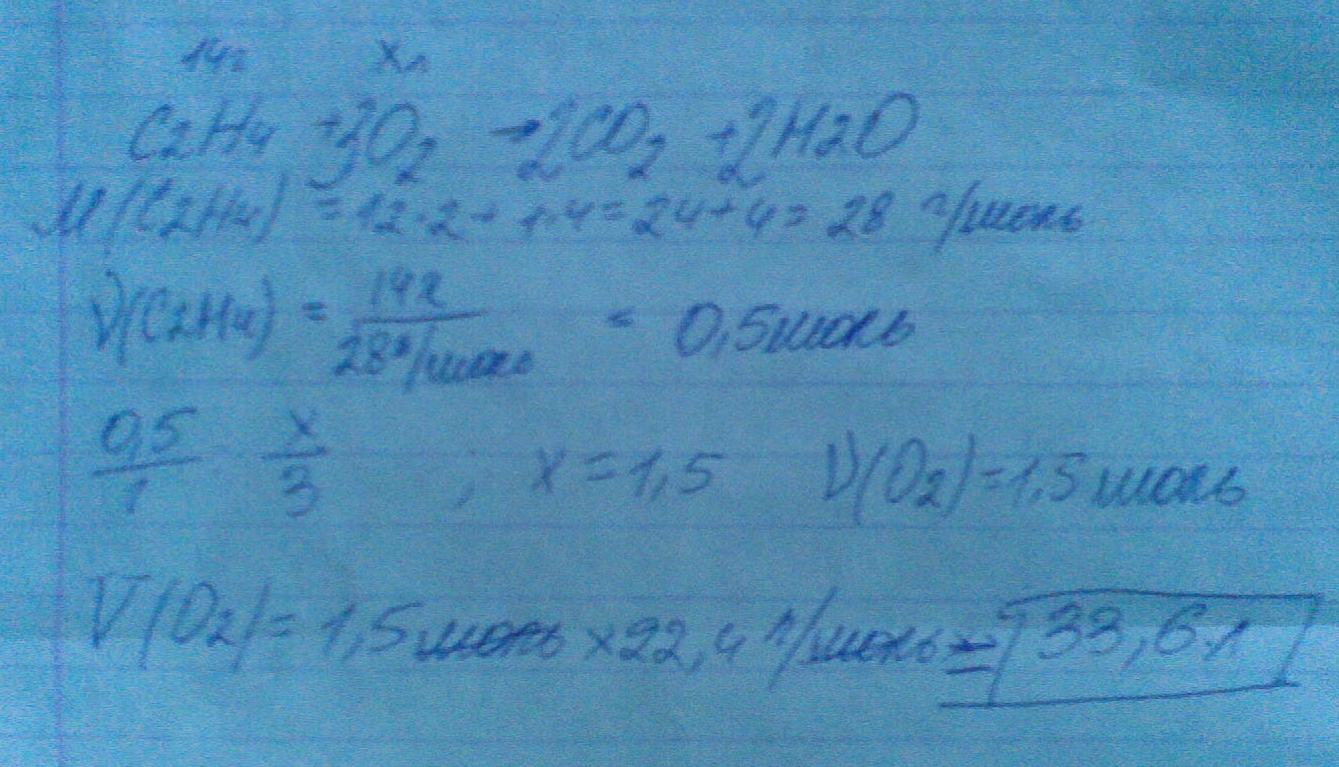 14г Xл
C2H4 +3O2 →2CO2 +2H2O
M(C2H4) = 12·2+1·4=24+4=28 г/моль
ν(C2H4) = 14г/28г/моль = 0,5моль
0,5/1 X/3 ; X=1,5 ν(O2)=1,5моль
V(O2)=1,5моль×22,4 г/моль=33,6л